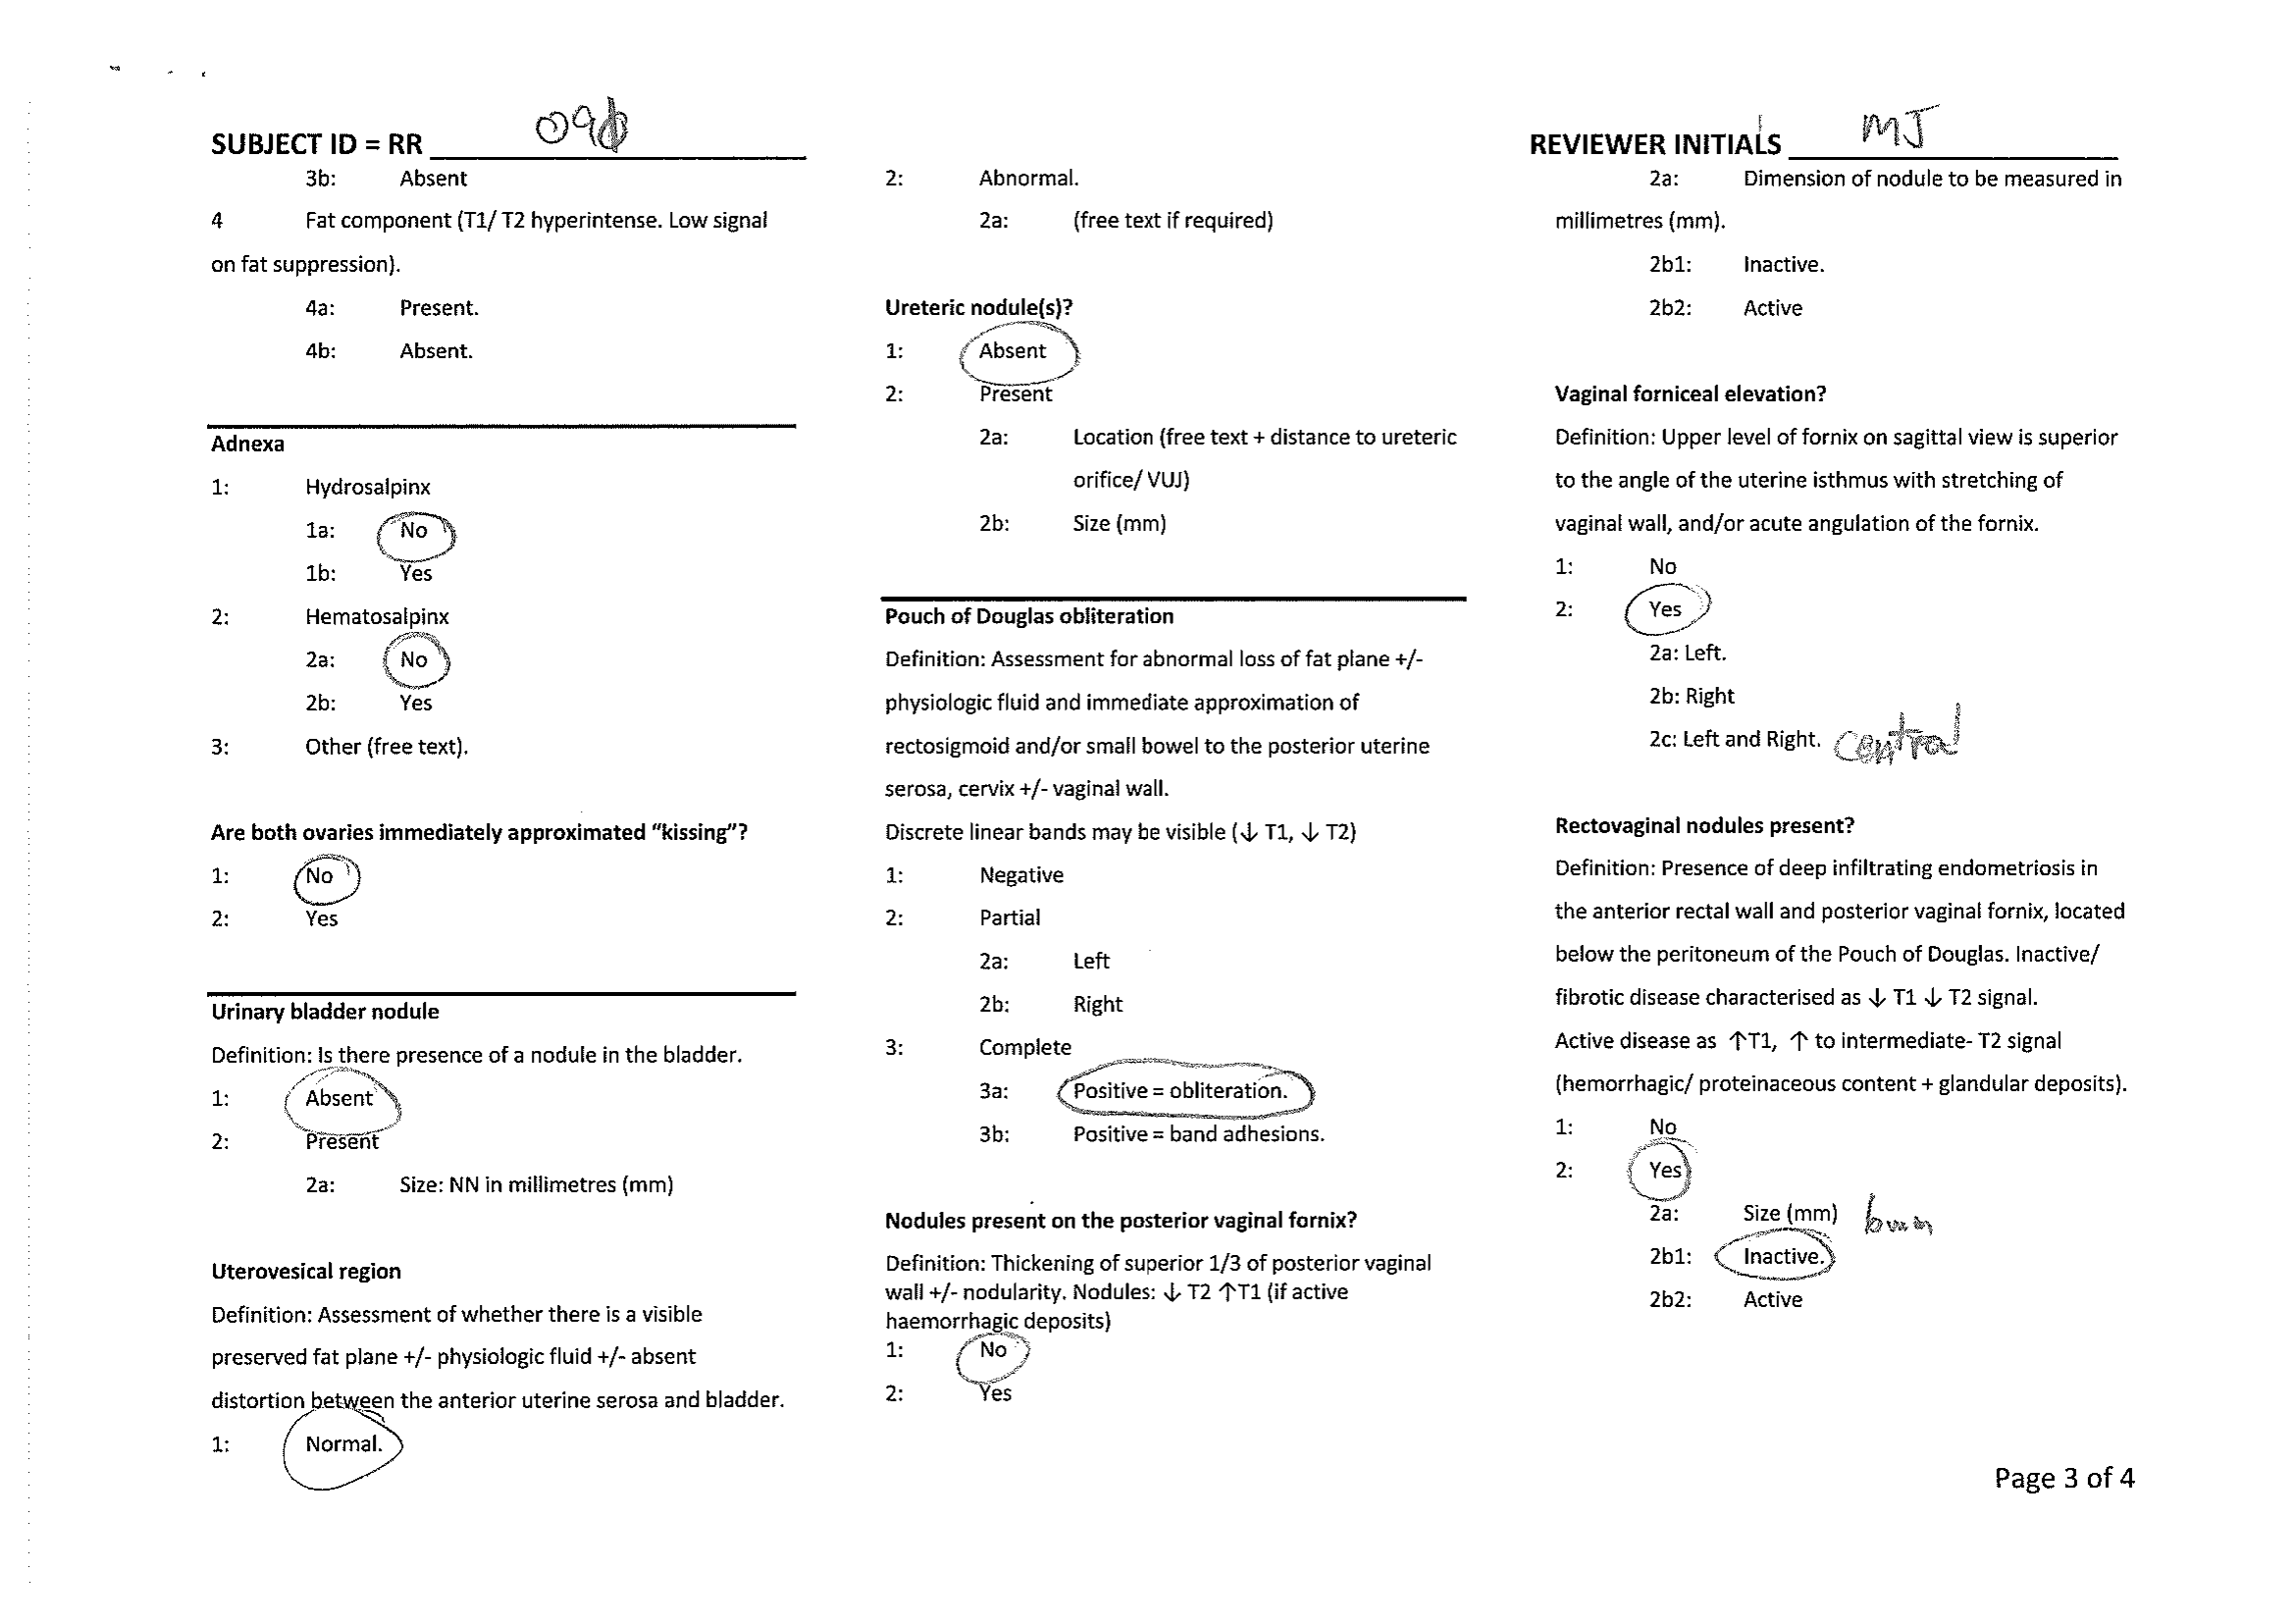 SUBJECT ID = RR
REVIEWER INITIALS MJ
3b: Absent
4 Fat component (T1/ T2 hyperintense. Low signal
on fat suppression).
4a: Present.
4b: Absent.
Adnexa
1: Hydrosalpinx
1a: No
1b: Yes
2: Hematosalpinx
2a: No
2b: Yes
3: Other (free text).
Are both ovaries immediately approximated “kissing”?
1: No
2: Yes
Urinary bladder nodule
Definition: Is there presence of a nodule in the bladder.
1: Absent
2: Present
2a: Size: NN in millimetres (mm)
Uterovesical region
Definition: Assessment of whether there is a visible
preserved fat plane +/- physiologic fluid +/- absent
distortion between the anterior uterine serosa and bladder.
1: Normal.
2: Abnormal.
2a: (free text if required)
Ureteric nodule(s)?
1: Absent
2: Present
2a: Location (free text + distance to ureteric
orifice/ VUJ)
2b: Size (mm)
Pouch of Douglas obliteration
Definition: Assessment for abnormal loss of fat plane +/-
physiologic fluid and immediate approximation of
rectosigmoid and/or small bowel to the posterior uterine
serosa, cervix +/- vaginal wall.
Discrete linear bands may be visible (↓ T1, ↓ T2)
1: Negative
2: Partial
2a: Left
2b: Right
3: Complete
3a: Positive = obliteration.
3b: Positive = band adhesions.
Nodules present on the posterior vaginal fornix?
Definition: Thickening of superior 1/3 of posterior vaginal
wall +/- nodularity. Nodules: ↓ T2 ↑T1 (if active
haemorrhagic deposits)
1: No
2: Yes
2a: Dimension of nodule to be measured in
millimetres (mm).
2b1: Inactive.
2b2: Active
Vaginal forniceal elevation?
Definition: Upper level of fornix on sagittal view is superior
to the angle of the uterine isthmus with stretching of
vaginal wall, and/or acute angulation of the fornix.
1: No
2: Yes
2a: Left.
2b: Right
2c: Left and Right. central
Rectovaginal nodules present?
Definition: Presence of deep infiltrating endometriosis in
the anterior rectal wall and posterior vaginal fornix, located
below the peritoneum of the Pouch of Douglas. Inactive/
fibrotic disease characterised as ↓ T1 ↓ T2 signal.
Active disease as ↑T1, ↑ to intermediate- T2 signal
(hemorrhagic/ proteinaceous content + glandular deposits).
1: No
2: Yes
2a: Size (mm) 6mm
2b1: Inactive.
2b2: Active
Page 3 of 4